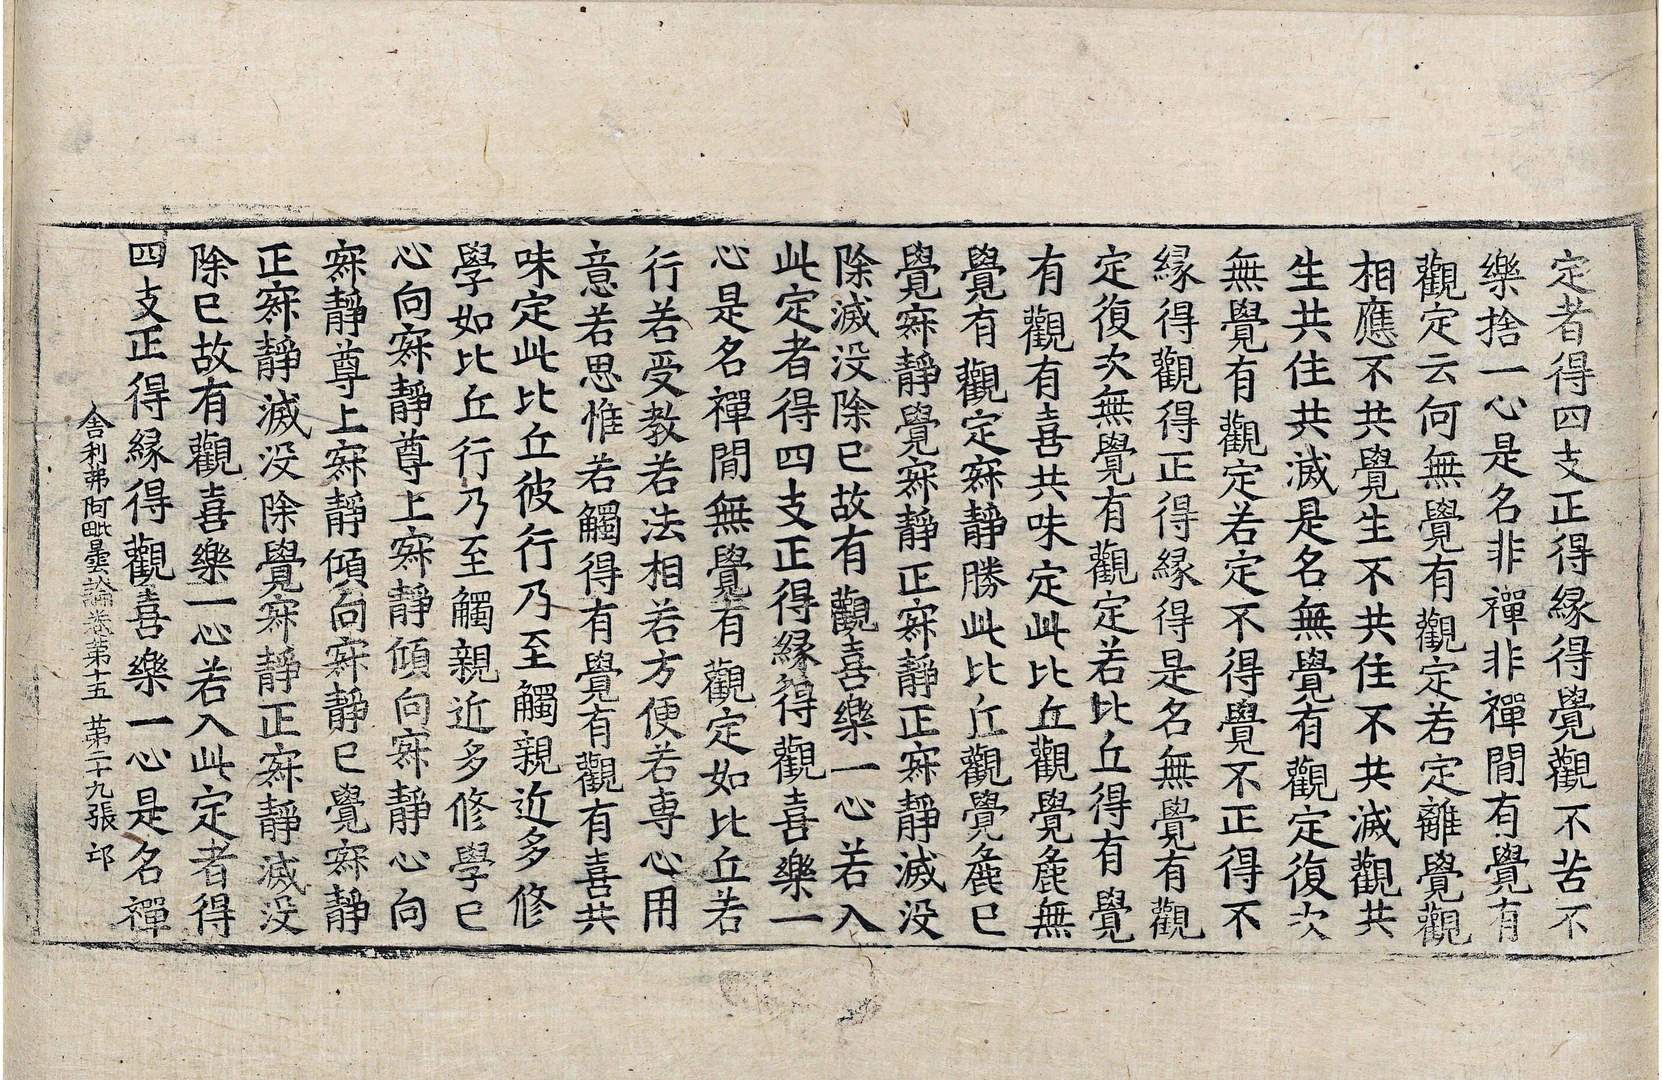 定者得四支正得緣得覺觀不苦不
樂捨一心是名非禪非禪閒有覺有
觀定云何無覺有觀定若定離覺觀
相應不共覺生不共住不共滅觀共
生共住共滅是名無覺有觀定復次
無覺有觀定若定不得覺不正得不
緣得觀得正得緣得是名無覺有觀
定復次無覺有觀定若比丘得有覺
有觀有喜共味定此比丘觀覺麁無
覺有觀定寂靜勝此比丘觀覺麁已
覺寂靜覺寂靜正寂靜正寂靜滅没
除滅没除已故有觀喜樂一心若入
此定者得四支正得緣得觀喜樂一
心是名禪閒無覺有觀定如比丘若
行若受教若法相若方便若專心用
意若思惟若觸得有覺有觀有喜共
味定此比丘彼行乃至觸親近多修
學如比丘行乃至觸親近多修學已
心向寂靜尊上寂靜傾向寂靜心向
寂靜尊上寂靜傾向寂靜已覺寂靜
正寂靜滅没除覺寂靜正寂靜滅没
除已故有觀喜樂一心若入此定者得
四支正得緣得觀喜樂一心是名禪
舍利弗阿毗曇論卷第十五 第二十九張 邙